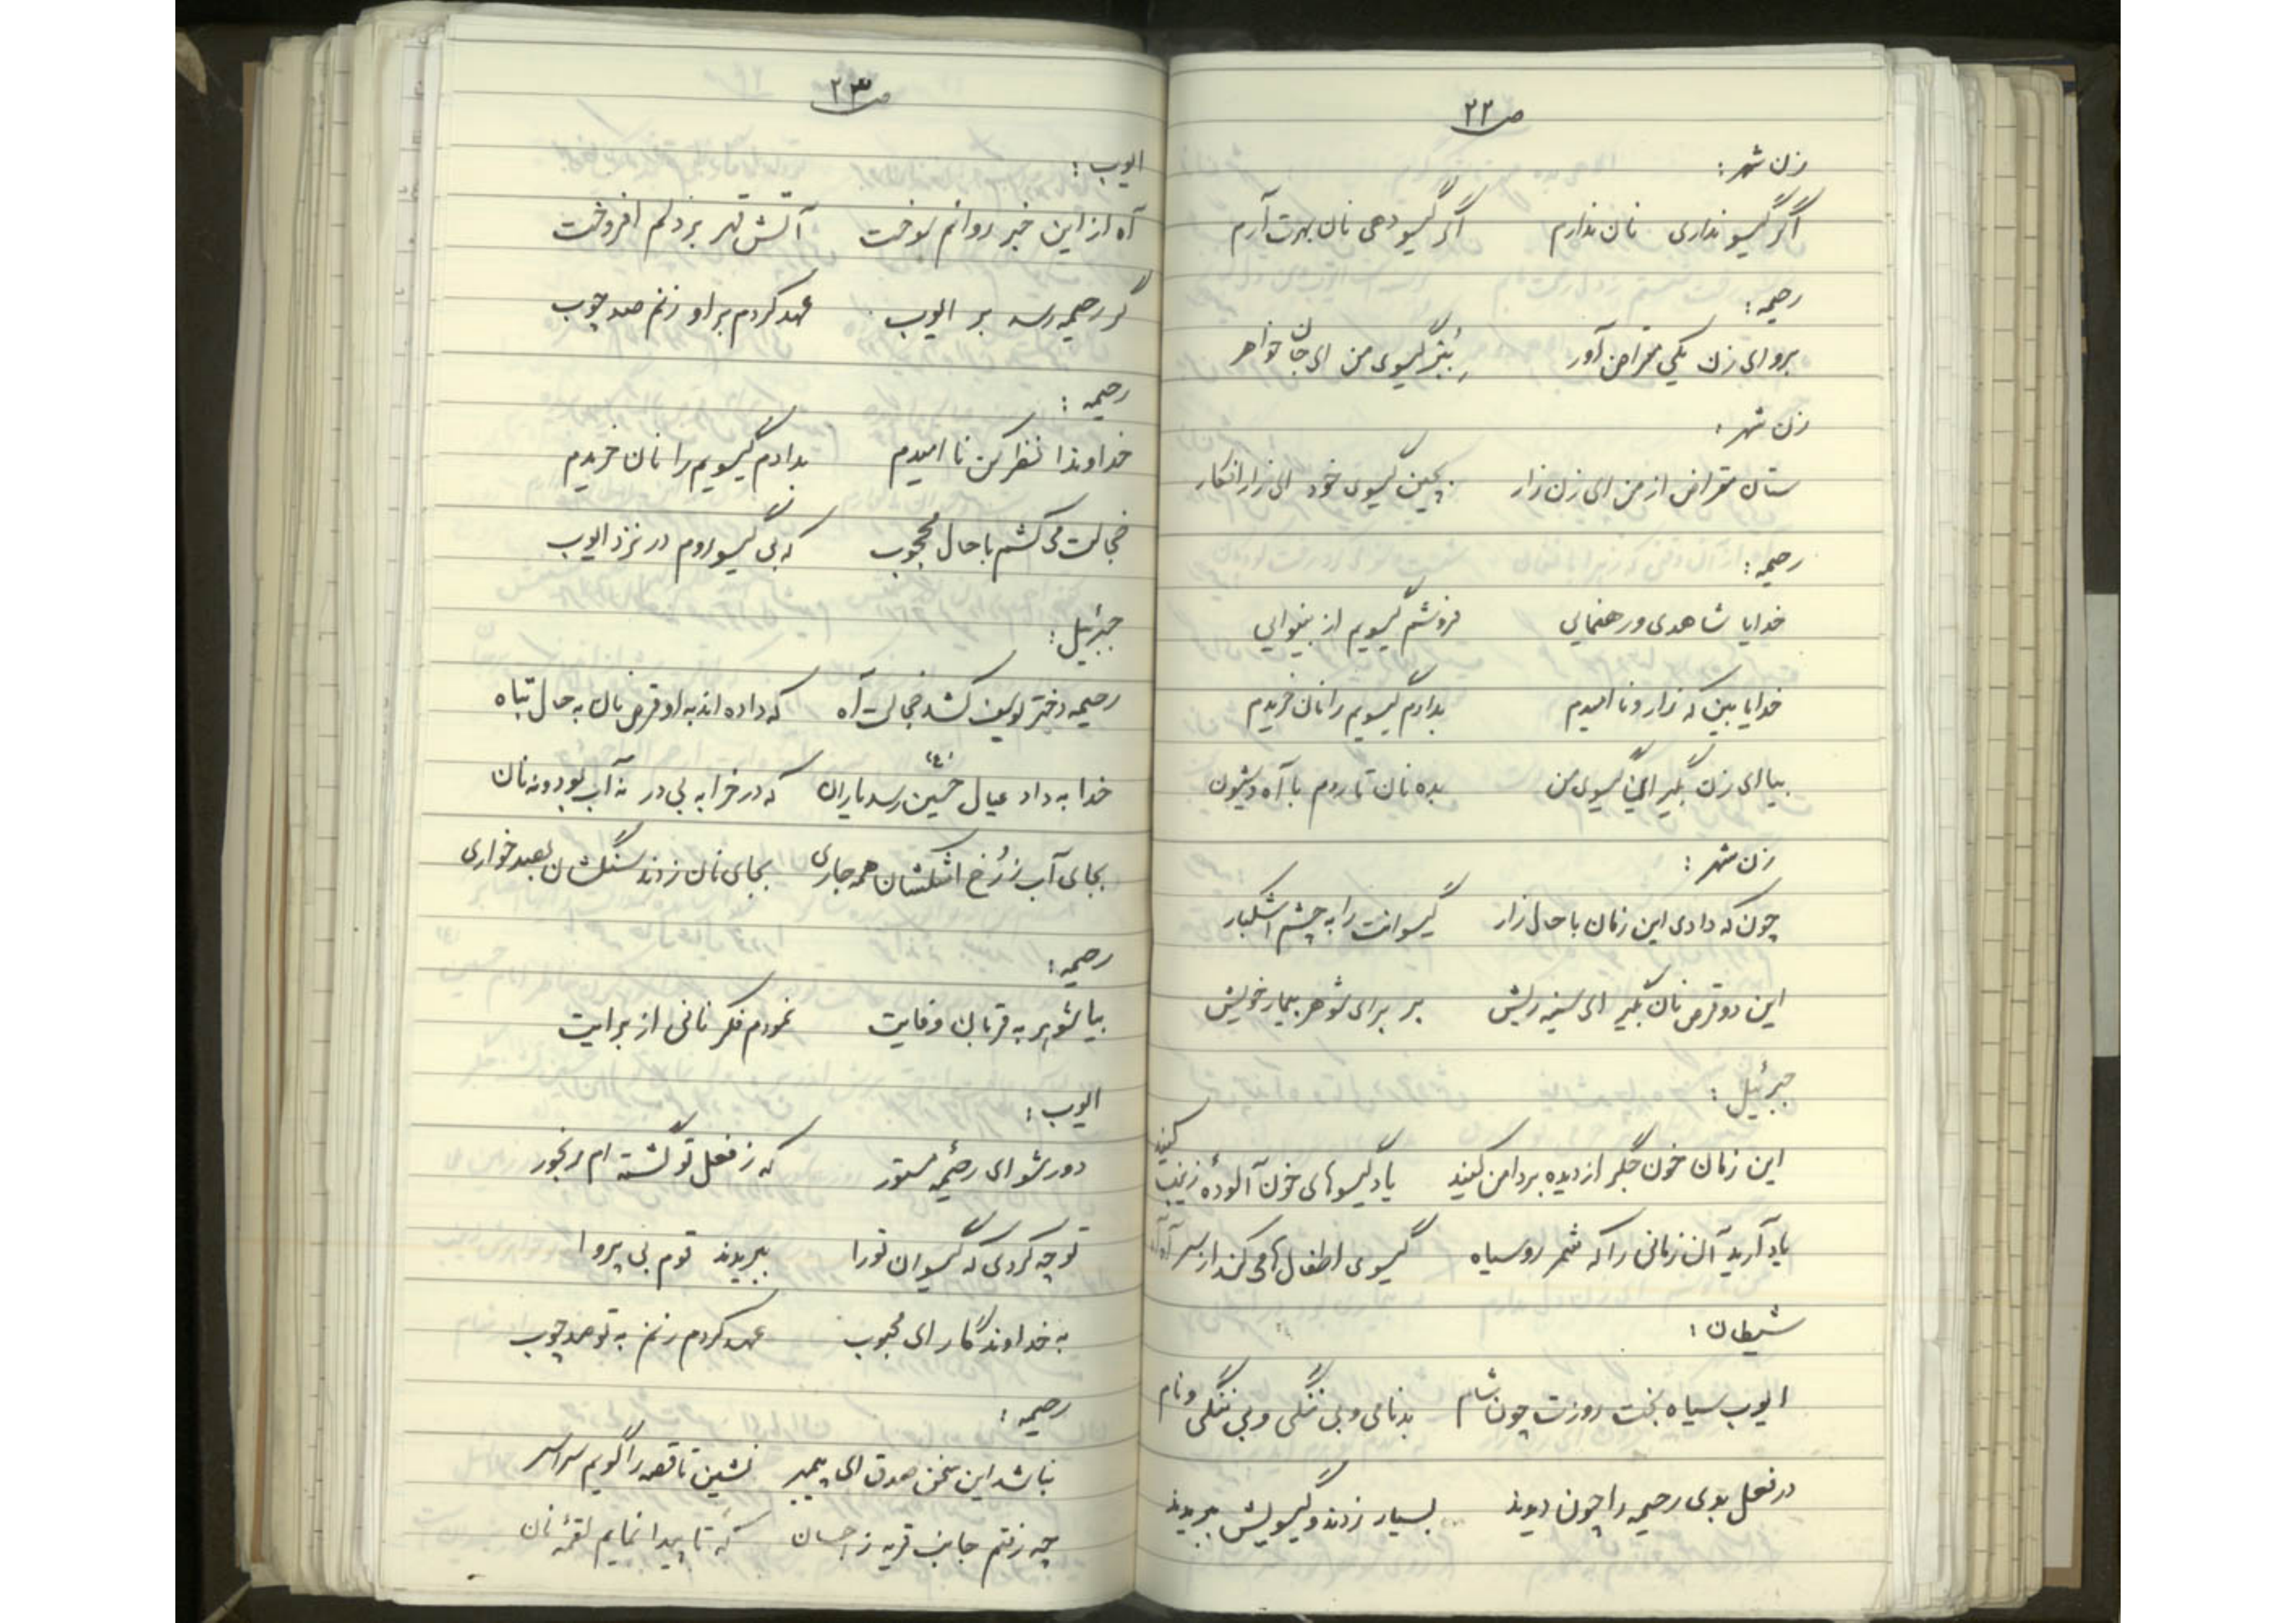 ص۲۲
زن شهر :
اگر گیسو نداری نان ندارم اگر گیسو دهی نان بهرت آرم
رحیمه :
برو ای زن یکی مقراض آور ببُر گیسوی من ای جان خواهر
زن شهر :
ستان مقراض از من ای زن زار بچین گیسوی خود ای زار افکار
رحیمه :
خدایا شاهدی و رهنمایی فروشم گیسویم از بینوایی
خدایا بین که زار و نا امیدم بدادم گیسویم را نان خریدم
بیا ای زن بگیر این گیسوی من بده نان تا روم با آه و شیون
زن شهر :
چون که دادی این زمان با حال زار گیسوانت را به چشم اشکبار
این دو قرص نان بگیر ای سینه ریش بر برای شوهر بیمار خویش
جبرئیل :
این زمان خون جگر از دیده بر دامن کنید یاد گیسوهای خون آلودهٔ زینب کنید
یاد آرید آن زمانی را که شمر روسیاه گیسوی اطفال را می کند از سر آه آه
شیطان :
ایوب سیاه بخت روزت چون شام بدنامی و بی ننگی و بی ننگی و نام
در فعل بدی رحیمه را چون دیدند بسیار زدند و گیسویش ببریدند
ص۲۳
ایوب :
آه از این خبر روانم سوخت آتش قهر بر دلم افروخت
گر رحیمه رسد بر ایوب عهد کردم بر او زنم صد چوب
رحیمه :
خداوندا نظر کن نا امیدم بدادم گیسویم را نان خریدم
خجالت می کشم با حال محجوب که بی گیسو روم در نزد ایوب
جبرئیل :
رحیمه دختر یوسف کشد خجالت آه که داده اند به او قرص نان به حال تباه
خدا به داد عیال حسین (ع) رسد یاران که در خرابه بی در نه آب بود و نه نان
بجای آب ز رُخ اشکشان همه جاری بجای نان زدند سنگشان بصد خواری
رحیمه :
بیا شوهر به قربان وفایت نمودم فکر نانی از برایت
ایوب :
دور شو ای رحیمهٔ مستور که ز فعل تو گشته ام رنجور
تو چه کردی که گیسوان تو را ببریدند قوم بی پروا
به خداوندگار ای محبوب عهد کردم زنم به تو صد چوب
رحیمه :
نباشد این سخن صدق ای پیمبر نشین تا قصه را گویم سراسر
چه رفتم جانب قریه ز احسان که تا پیدا نمایم لقمهٔ نان